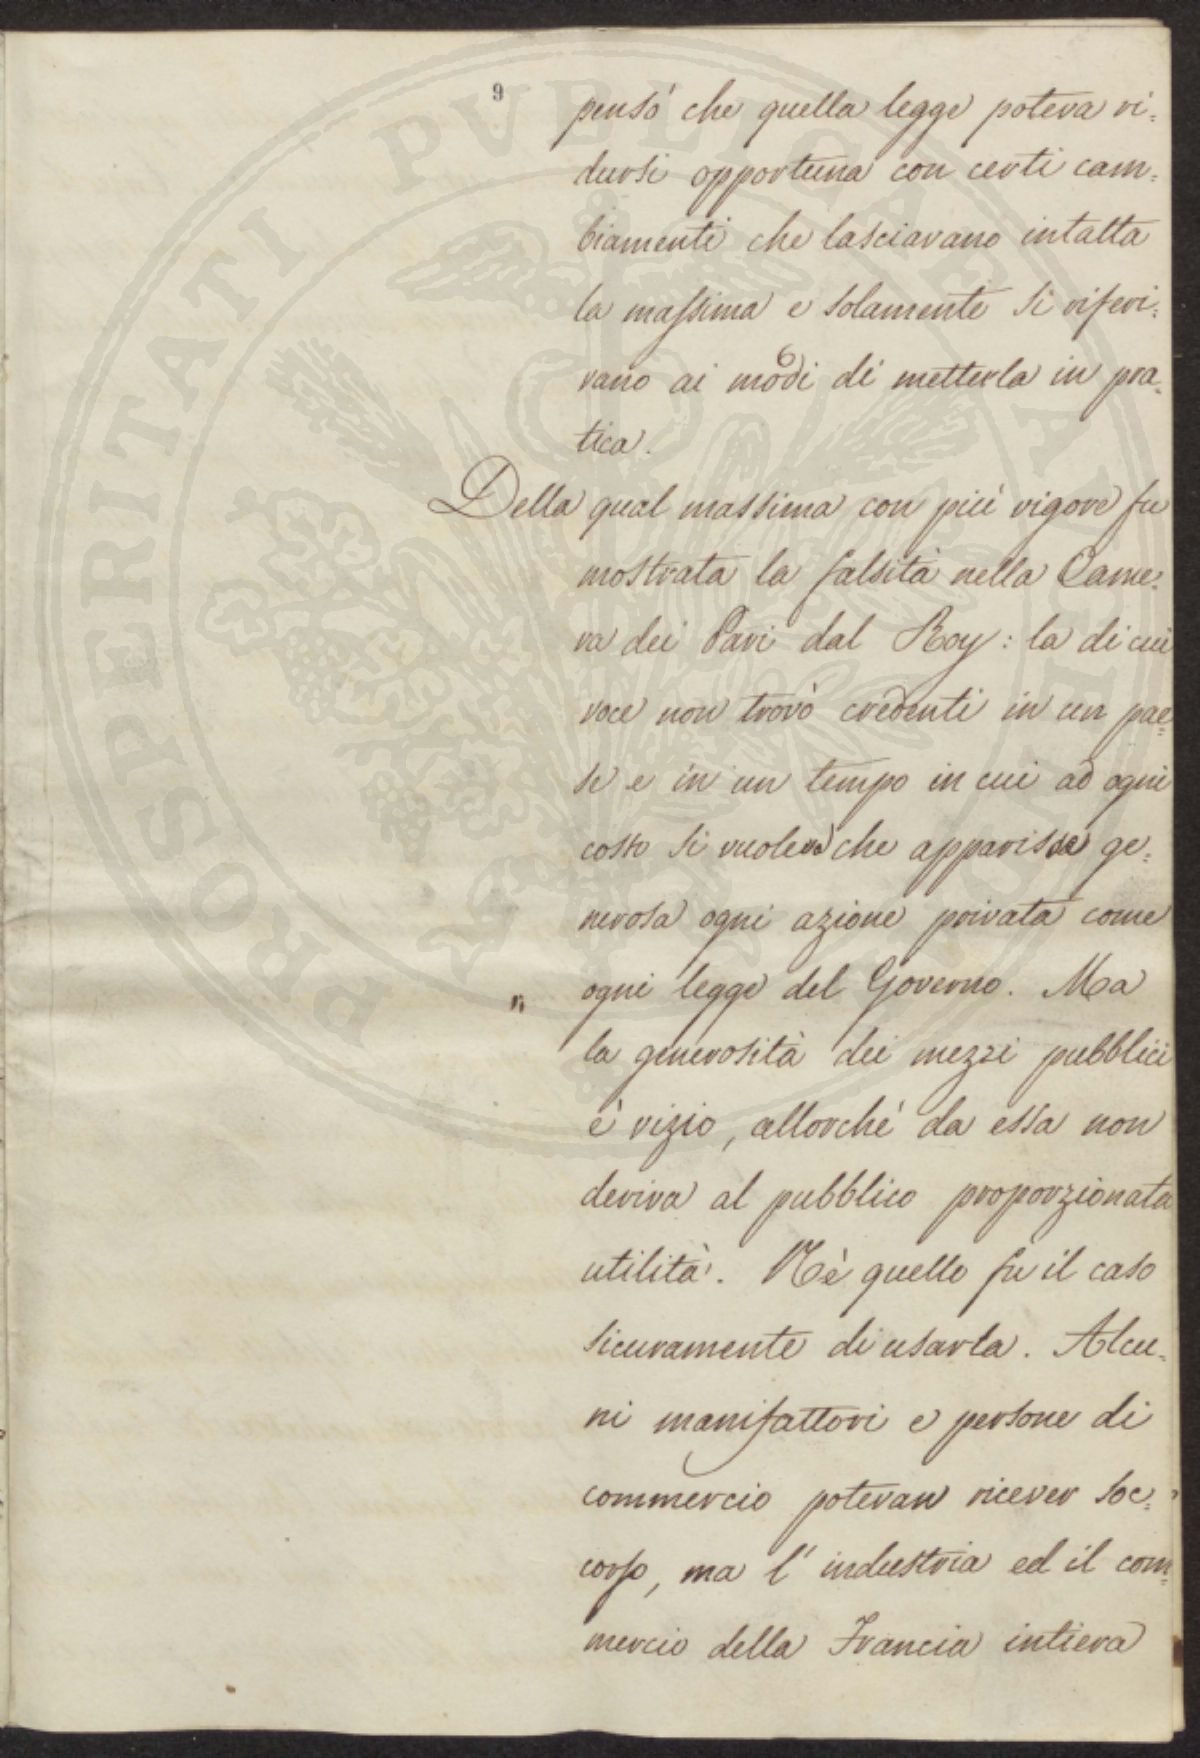 9
pensò che quella legge poteva ri=
dursi opportuna con certi cam=
biamenti che lasciavano intatta
la massima e solamente si riferi=
vano ai modi di metterla in pra=
tica.
Della qual massima con più vigore fu
mostrata la falsità nella Came=
ra dei Pari dal Roy: la di cui
voce non trovò credenti in un pae=
se e in un tempo in cui ad ogni
costo si voleva che apparisse ge=
nerosa ogni azione privata come
ogni legge del Governo. Ma
la generosità dei mezzi pubblici
è vizio, allorchè da essa non
deriva al pubblico proporzionata
utilità. Nè quello fu il caso
sicuramente di usarla. Alcu=
ni manifattori e persone di
commercio potevan ricever soc=
corso, ma l'industria ed il com=
mercio della Francia intiera
PROSPERITATI PVBLICAE AVGENDAE